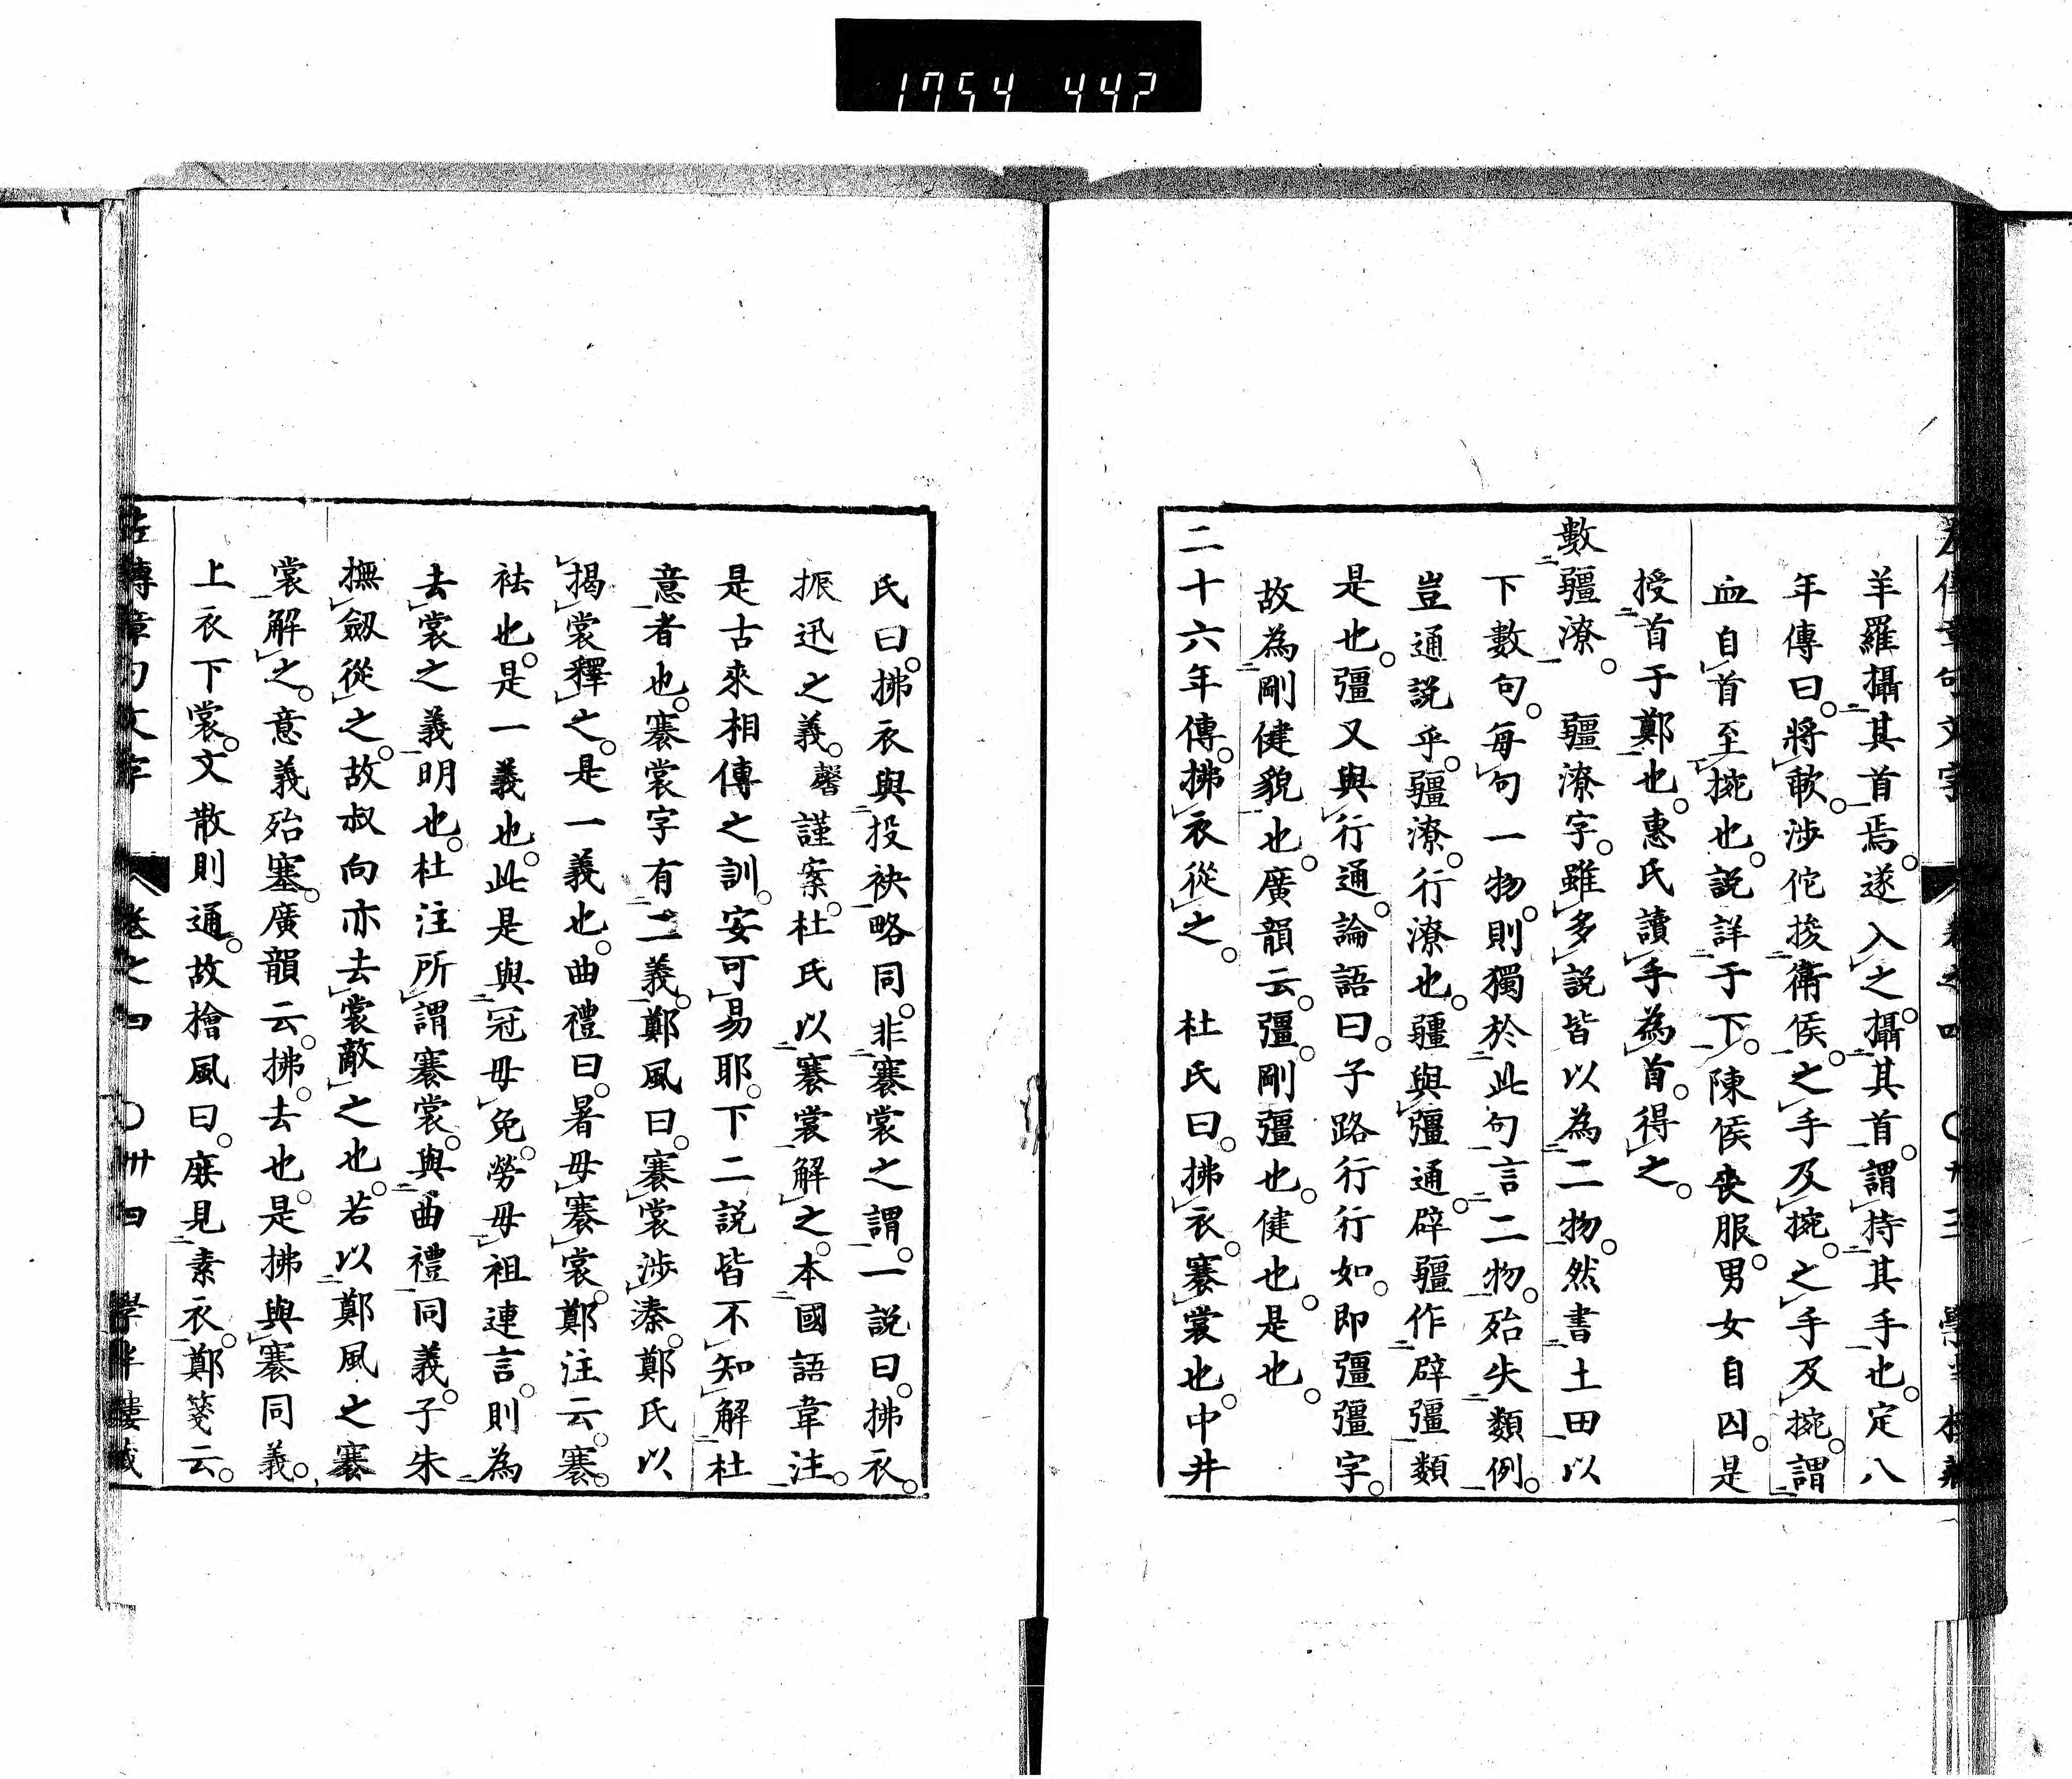 1754 442
羊羅攝其首焉。遂入之。攝其首。謂持其手也。定八
年傳曰。將歃。涉佗捘衞侯。之手及捥。之手及捥。謂
血自首至捥也。説詳于下。陳侯喪服。男女自囚。是
授首于鄭也。惠氏讀手為首。得之。
數疆潦。 疆潦字。雖多説皆以為二物。然書土田以
下數句。每句一物。則獨於此句言二物。殆失類例。
豈通説乎。疆潦。行潦也。疆與彊通。辟疆作辟彊類
是也。彊又與行通。論語曰。子路行行如。即彊彊字。
故為剛健貌也。廣韻云。彊。剛彊也。健也。是也。
二十六年傳。拂衣從之。 杜氏曰。拂衣。褰裳也。中井
氏曰。拂衣與投袂略同。非褰裳之謂。一説曰。拂衣。
振迅之義。馨謹案。杜氏以褰裳解之。本國語韋注。
是古來相傳之訓。安可易耶。下二説皆不知解杜
意者也。褰裳字有二義。鄭風曰。褰裳涉溱。鄭氏以
揭裳釋之。是一義也。曲禮曰。暑毋褰裳。鄭注云。褰。
袪也。是一義也。此是與冠毋免。勞毋袒連言。則為
去裳之義明也。杜注所謂褰裳。與曲禮同義。子朱
撫劔從之。故叔向亦去裳敵之也。若以鄭風之褰
裳解之。意義殆塞。廣韻云。拂。去也。是拂與褰同義。
上衣下裳。文散則通。故檜風曰。庶見素衣。鄭箋云。
左傳章句文字 卷之四 〇卅四 學半樓藏